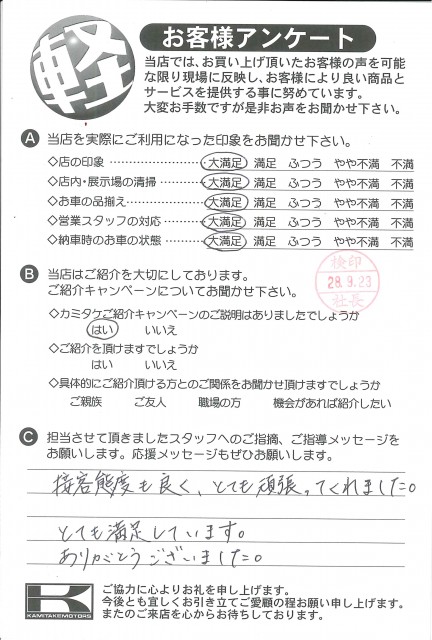 軽
お客様アンケート
当店では、お買い上げ頂いたお客様の声を可能
な限り現場に反映し、お客様により良い商品と
サービスを提供する事に努めています。
大変お手数ですが是非お声をお聞かせ下さい。
A 当店を実際にご利用になった印象をお聞かせ下さい。
◇店の印象 大満足 満足 ふつう やや不満 不満
◇店内・展示場の清掃 大満足 満足 ふつう やや不満 不満
◇お車の品揃え 大満足 満足 ふつう やや不満 不満
◇営業スタッフの対応 大満足 満足 ふつう やや不満 不満
◇納車時のお車の状態 大満足 満足 ふつう やや不満 不満
B 当店はご紹介を大切にしております。
ご紹介キャンペーンについてお聞かせ下さい。
検印
28.9.23
社長
◇カミタケご紹介キャンペーンのご説明はありましたでしょうか
はい いいえ
◇ご紹介を頂けますでしょうか
はい いいえ
◇具体的にご紹介頂ける方とのご関係をお聞かせ頂けますでしょうか
ご親族 ご友人 職場の方 機会があれば紹介したい
C 担当させて頂きましたスタッフへのご指摘、ご指導メッセージを
お願いします。応援メッセージもぜひお願いします。
接客態度も良く、とても頑張ってくれました。
とても満足しています。
ありがとうございました。
K
KAMITAKEMOTORS
ご協力に心よりお礼を申し上げます。
今後とも宜しくお引き立てご愛顧の程お願い申し上げます。
またのご来店を心からお待ちしております。